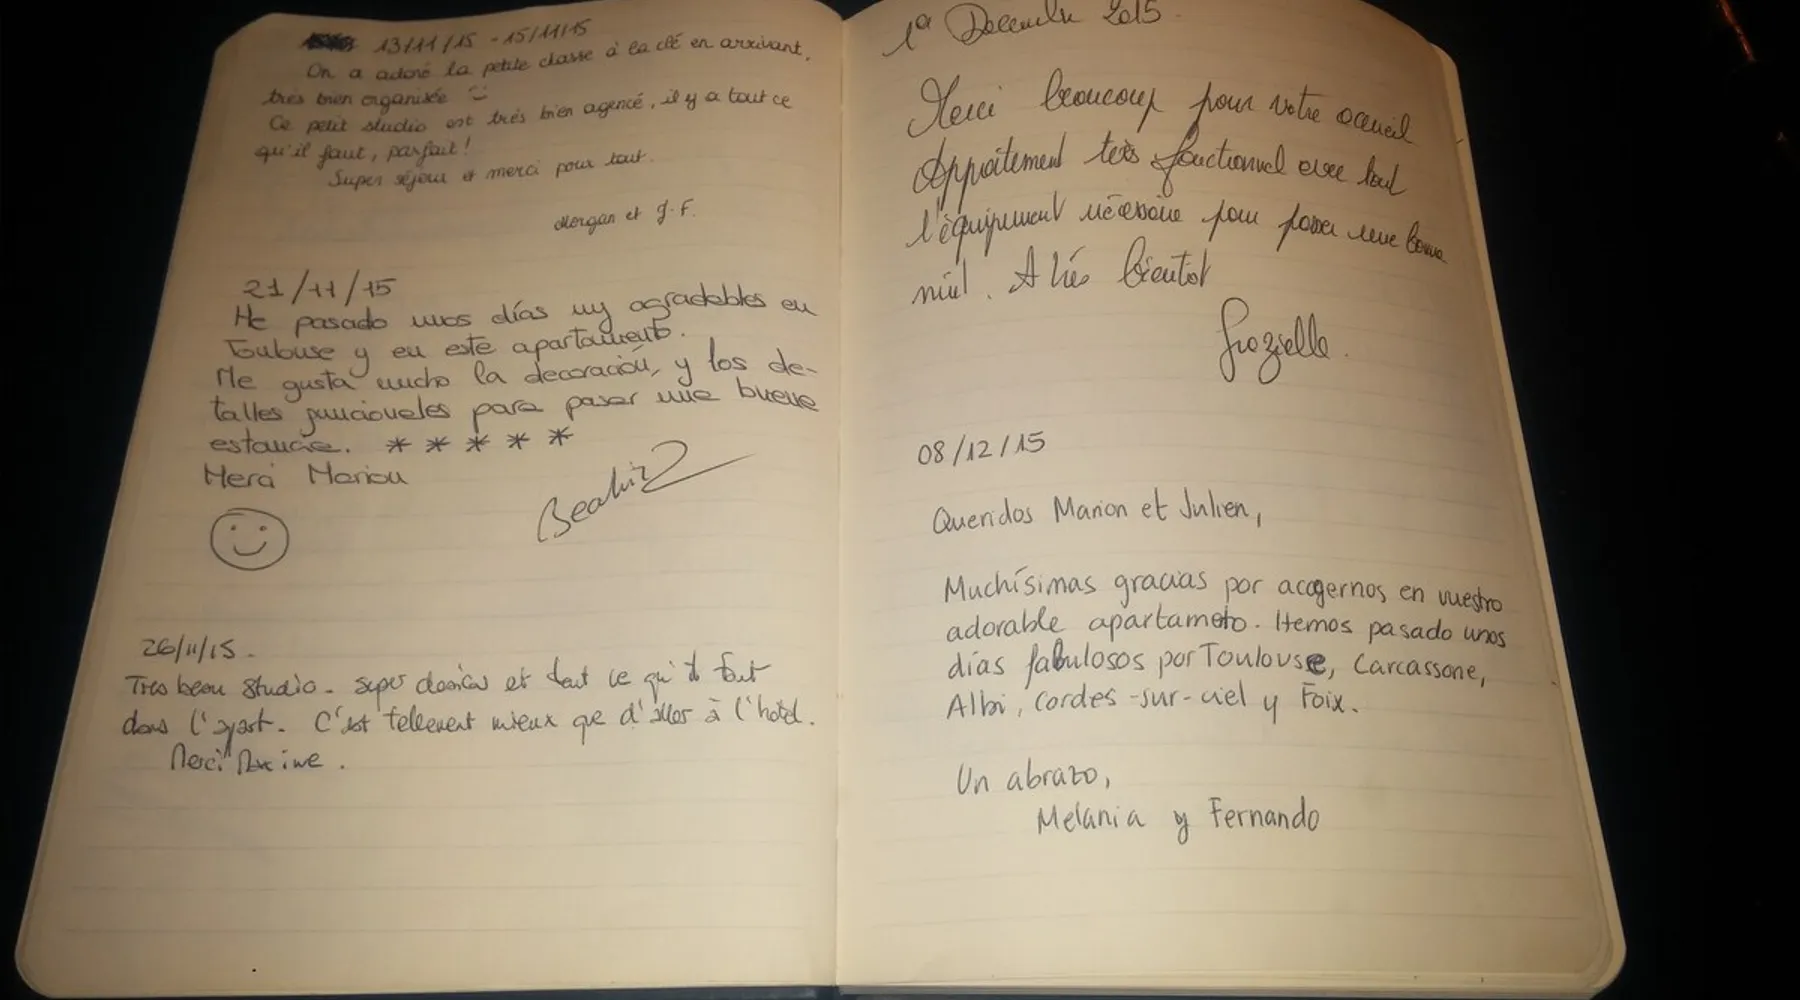 13/11/15 - 15/11/15
On a adoré la petite chasse à la clé en arrivant,
très bien organisée
Ce petit studio est très bien agencé, il y a tout ce
qu'il faut, parfait!
Super séjour et merci pour tout.
Morgan et J.F.
21/11/15
He pasado unos días muy agradables en
Toulouse y en este apartamento.
Me gusta mucho la decoración, y los de-
talles funcionales para pasar una buena
estancia. * * * * *
Merci Marion
Beatriz
26/11/15.
Tres beau studio. super deco et tout ce qu'il faut
dans l'apart. C'est tellement mieux que d'aller à l'hotel.
Merci Maxime.
1er Décembre 2015.
Merci beaucoup pour votre accueil
Appartement très fonctionnel avec tout
l'équipement nécessaire pour passer une bonne
nuit. A très bientôt
Grazielle.
08/12/15
Queridos Marion et Julien,
Muchísimas gracias por acogernos en vuestro
adorable apartamoto. Hemos pasado unos
días fabulosos por Toulouse, Carcassone,
Albi, Cordes-sur-ciel y Foix.
Un abrazo,
Melania y Fernando